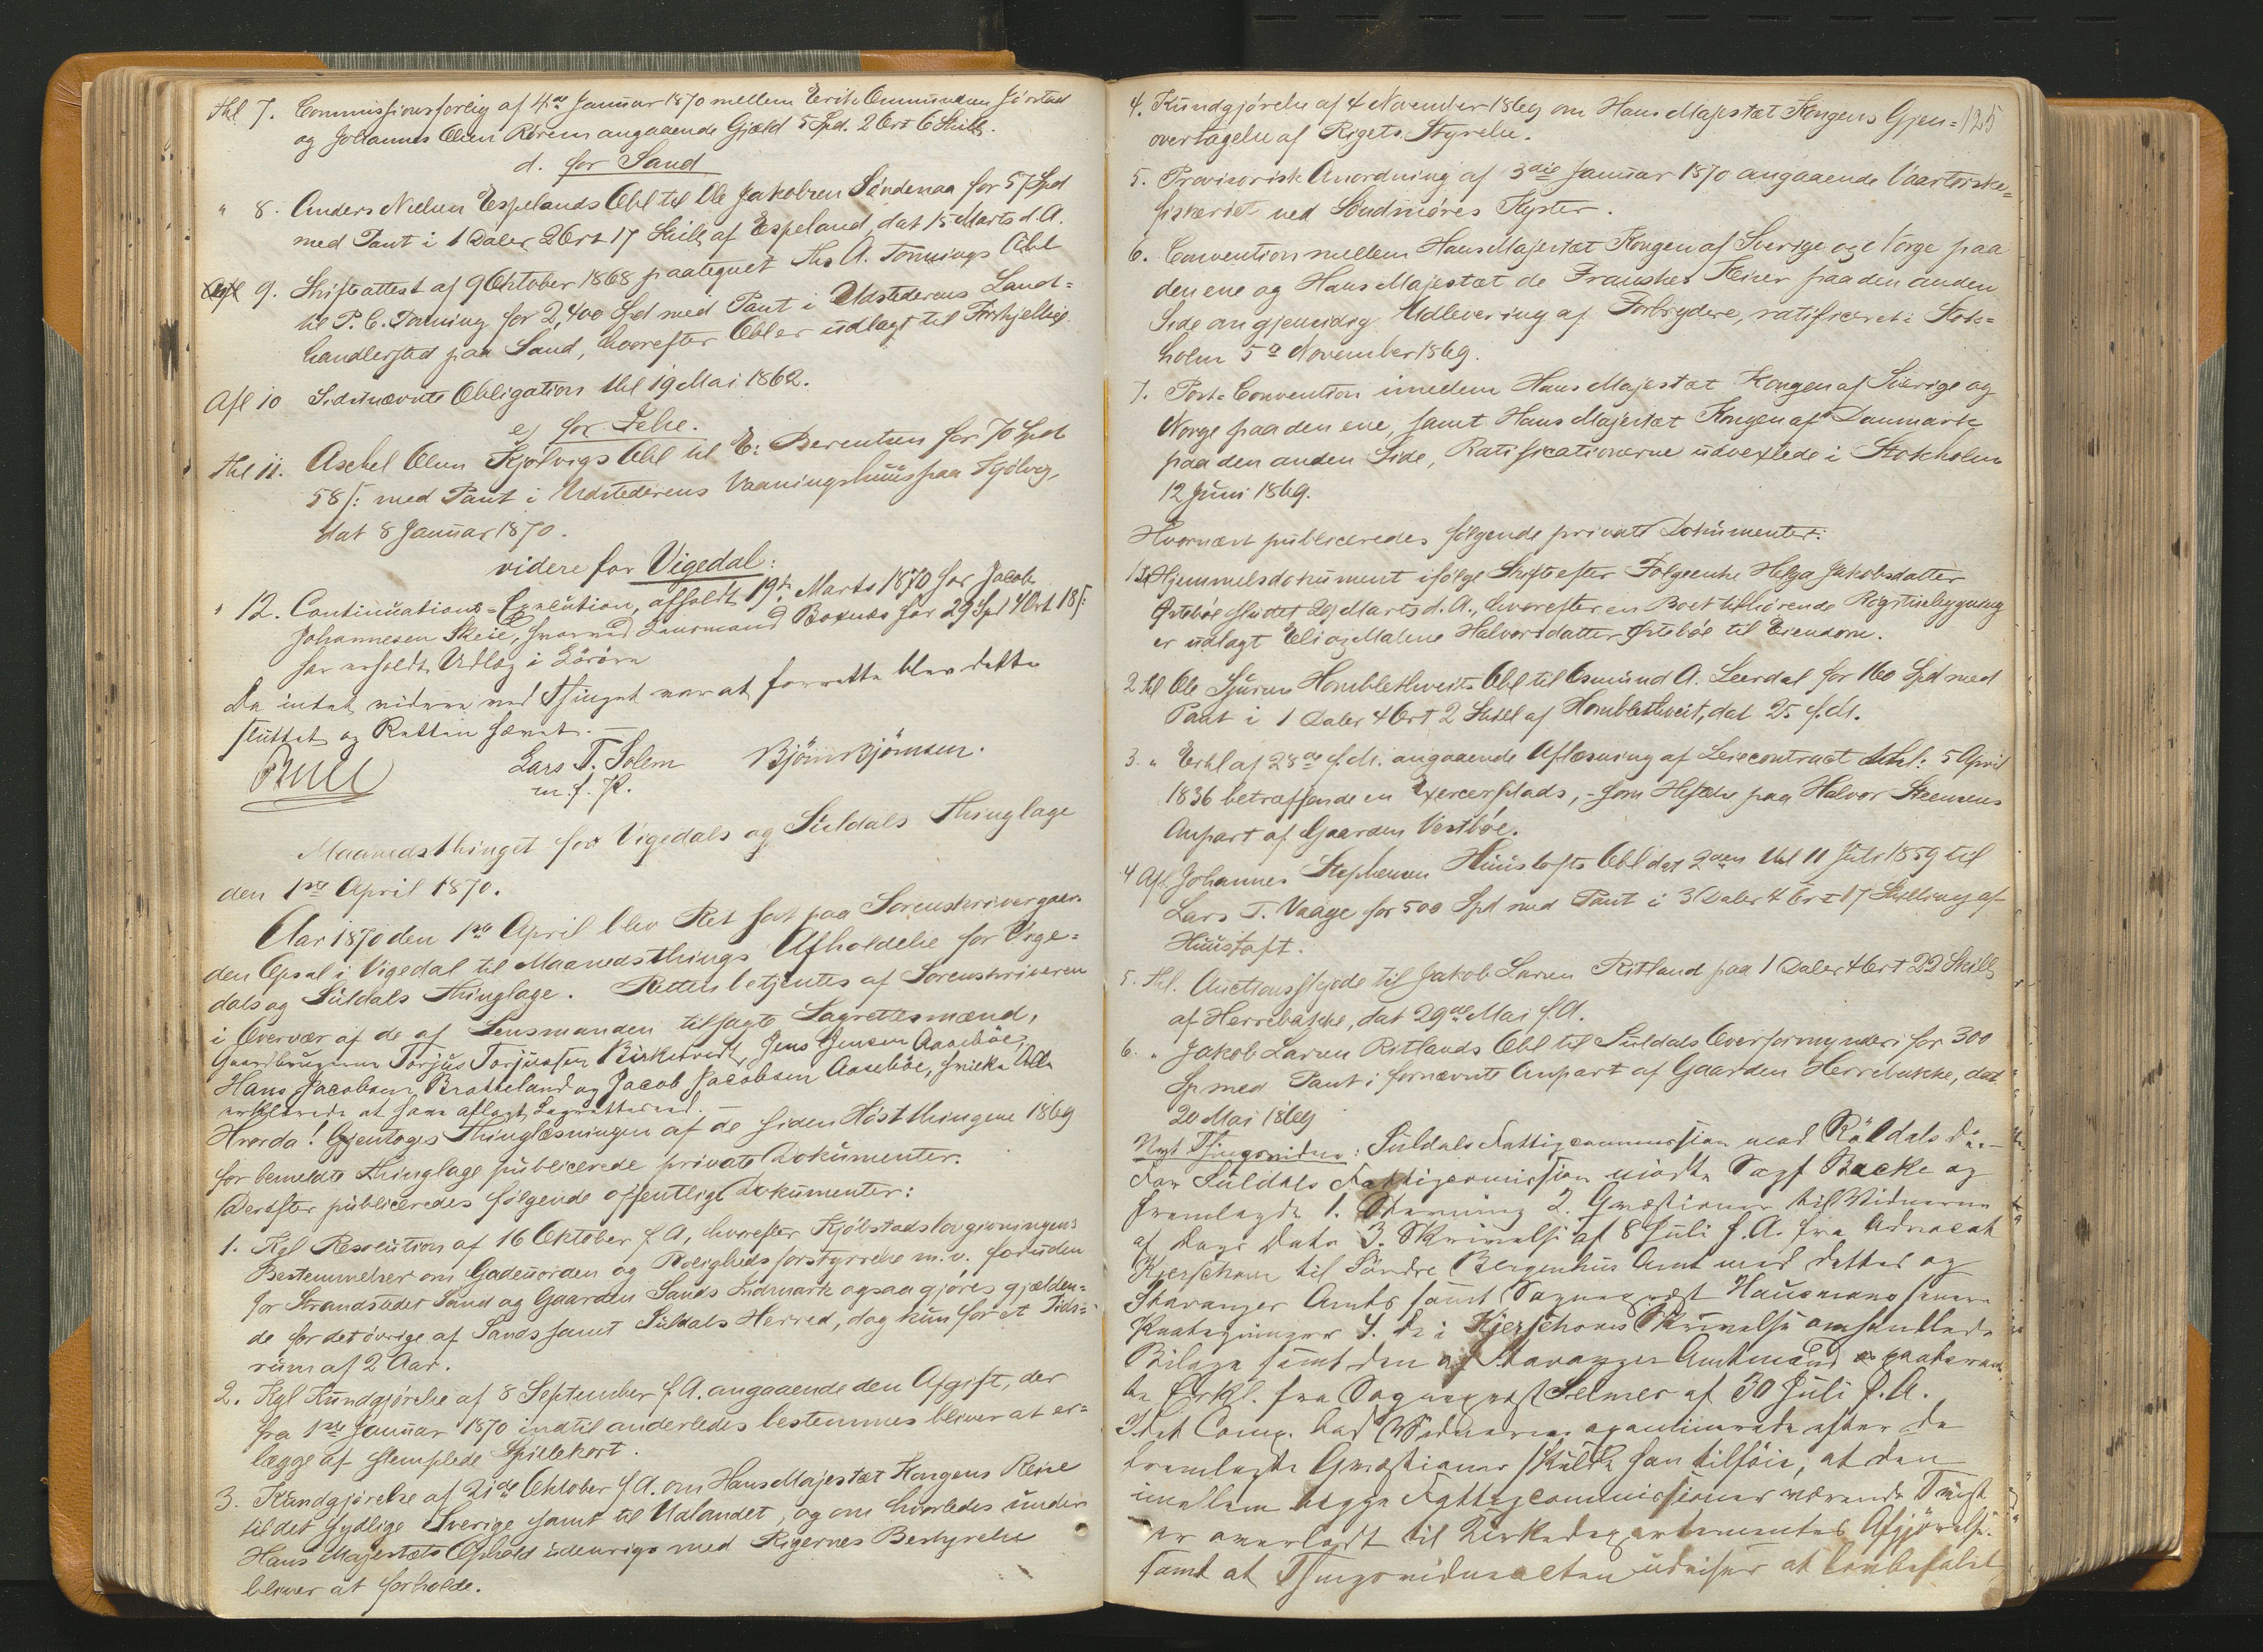 thl 7. Commissionsforlig af 4de Januar 1870 mellem Erik Omundsen Jörstad
og Johannes Olsen Rörem angaaende Gjæld 5 Spd. 2 Ort 6 Skill.
d. for Sand
" 8. Anders Nielsen Espelands Obl til Ole Jakobsen Söndenaa for 57 Spd
med Pant i 1 Daler 2 Ort 17 Skill af Espeland, dat 15 Marts d. A.
9. Skifteattest af 9 Oktober 1868 paategnet Ths A. Tonnings Obl
til P. C. Tonning for 2,400 Spd med Pant i Udstederens Land=
handlersted paa Sand, hvorefter Obl er udlagt til
Afl 10 Sidstnævnte Obligation thl 19 Mai 1862.
e) for Jelse.
thl 11. Aschel Olsen Kjölvigs Obl til E: Berentsen for 70 Spd
58 s: med Pant i Udstederens Vaaningshuus paa Kjölvig,
dat 8 Januar 1870.
videre for Vigedal:
" 12. Continuations=Execution, afholdt 19de Marts 1870 for Jacob
Johannesen Skeie, hvorved Lensmand for 29 Spd 4 Ort 18 s:
har erholdt Udlæg i Lörörn
Da intet videre ved Thinget var at forrette blev dette
sluttet og Retten hævet. —
Bull Lars T. Solem Björn Björnsen.
m. f. P.
Maanedsthinget for Vigedals og Suldals Thinglage
den 1ste April 1870.
Aar 1870 den 1ste April blev Ret sat paa Sorenskrivergaar=
den Opsal i Vigedal til Maanedsthings Afholdelse for Vige=
dals og Suldals Thinglage. Retten betjentes af Sorenskriveren
i Overvær af de af Lensmanden tilsagte Lagrettesmænd,
Gaardbrugerne Torjus Torjussen Birkelvedt, Jens Jensen Aasebøe,
Hans Jacobsen Bratteland og Jacob Jacobsen Aasebøe, hvilke Alle
erklærede at have aflagt Lagretteseed. —
Hvorda! Gjentoges Thinglæsningen af de siden Høstthingene 1869
for bemeldte Thinglage publicerede private Dokumenter.
Derefter publiceredes følgende offentlige Dokumenter:
1. Kgl Resolution af 16 Oktober f. A, hvorefter Kjöbstadslovgivningens
Bestemmelser om Gadeuorden og Roligheds forstyrrelse m. v. foruden
for Strandstedet Sand og Gaarden Sands Indmark ogsaa gjöres gjælden=
de for det övrige af Sands samt Suldals Herred, dog kun for et Tids=
rum af 2 Aar.
2. Kgl Kundgjörelse af 8 September f. A. angaaende den Afgift, der
fra 1ste Januar 1870 indtil anderledes bestemmes bliver at er=
lægge af stemplede Spillekort.
3. Kundgjörelse af 21de Oktober f. A. om Hans Majestæt Kongens Reise
til det sydlige Sverige samt til Udlandet, og om hvorledes under
Hans Majestæts Ophold udenrigs med Rigernes Bestyrelse
bliver at forholde.
4. Kundgjörelse af 4 November 1869 om Hans Majestæt Kongens Gjen= 125
overtagelse af Rigets Styrelse.
5. Provisorisk Anordning af 3die Januar 1870 angaaende Vaartorske=
fiskeriet ved Söndmöres Kyster.
6. Convention mellem Hans Majestæt Kongen af Sverige og Norge paa
den ene og Hans Majestæt de Franskes Keiser paa den anden
Side om gjensidig Udlevering af Forbrydere, ratificeret i Stok=
holm 5te November 1869.
7. Post=Convention imellem Hans Majestæt Kongen af Sverige og
Norge paa den ene, samt Hans Majestæt Kongen af Danmark
paa den anden Side, Ratificationerne udvexlede i Stokholm
12 Juni 1869.
Hvornæst publiceredes følgende private Dokumenter:
1 Hjemmelsdokument ifölge Skifte efter Folgeenke Helga Jakobsdatter
Örtebøe sluttet 29 Marts d. A., hvorefter en Boet tilhörende Røgstuebygning
er udlagt Eli og Malene Halvorsdatter Örtebøe til Eiendom.
2 thl Ole Sjursen Homblethveits Obl til Osmund A. Leerdal for 160 Spd med
Pant i 1 Daler 4 Ort 2 Skill af Homblethveit, dat 25 f. M.
3. " Erkl af 28de f. M. angaaende Aflæsning af Leiecontract thl: 5 April
1836 betræffende en Exerceerplads, - som Heftelse paa Halvor Steensens
Anpart af Gaarden Vestbøe.
4 Afl Johannes Stephensen Huustofts Obl dat 2den thl 11 Juli 1859 til
Lars T. Vaage for 500 Spd med Pant i 3 Daler 4 Ort 17 Skilling af
Huustoft.
5. thl. Auctionsskjöde til Jakob Larsen Ritland paa 1 Daler 4 Ort 22 Skill
af Herrebakke, dat 29de Mai f. A.
6. " Jakob Larsen Ritlands Obl til Suldals Overformynderi for 300
Sp med Pant i fornævnte Anpart af Gaarden Herrebakke, dat
20 Mai 1869
Nyt Thingsvidne: Suldals Fattigcommission mod Röldals do —
For Suldals Fattigcommission mödte Sagf Backe og
fremlagde 1. Stævning 2. Qvæstioner til Vidnerne
af Dags Dato 3. Skrivelse af 8 Juli f. A. fra Advocat
Kjerschow til Søndre Bergenhus Amt med dettes og
Stavanger Amts samt Sogneprest Hausmans senere
Paategninger 4. de i Kjerschows Skrivelse omhandlede
Bilage samt den af Stavanger Amtmand paaberaab=
te Erkl. fra Sogneprest Selmer af 30 Juli f. A.
Idet Comp. bad Vidnerne examinerede efter de
fremlagte Qvæstioner skulde han tilföie, at den
imellem begge Fattigcommissioner værende Tvist
er overladt til Kirkedepartementets Afgjörelse.
samt at Thingsvidneakten udvises at